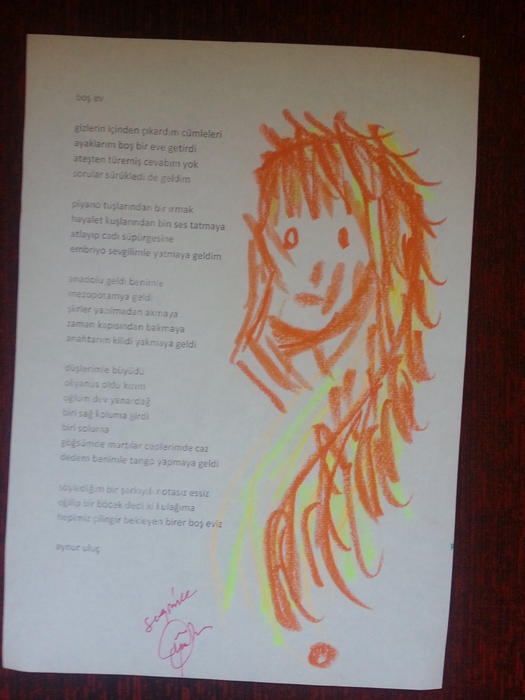 boş ev
gizlerin içinden çıkardım cümleleri
ayaklarım boş bir eve getirdi
ateşten türemiş cevabım yok
sorular sürükledi de geldim
piyano tuşlarından bir ırmak
hayalet kuşlarından bin ses tatmaya
atlayıp cadı süpürgesine
embriyo sevgilimle yatmaya geldim
anadolu geldi benimle
mezopotamya geldi
şiirler yazılmadan akmaya
zaman kapısından bakmaya
anahtarım kilidi yakmaya geldi
düşlerimle büyüdü
okyanus oldu kızım
oğlum dev yanardağ
biri sağ koluma girdi
biri soluma
göğsümde martılar ceplerimde caz
dedem benimle tango yapmaya geldi
söylediğim bir şarkıydı notasız essiz
eğilip bir böcek dedi ki kulağıma
hepimiz çilingir bekleyen birer boş eviz
aynur uluç